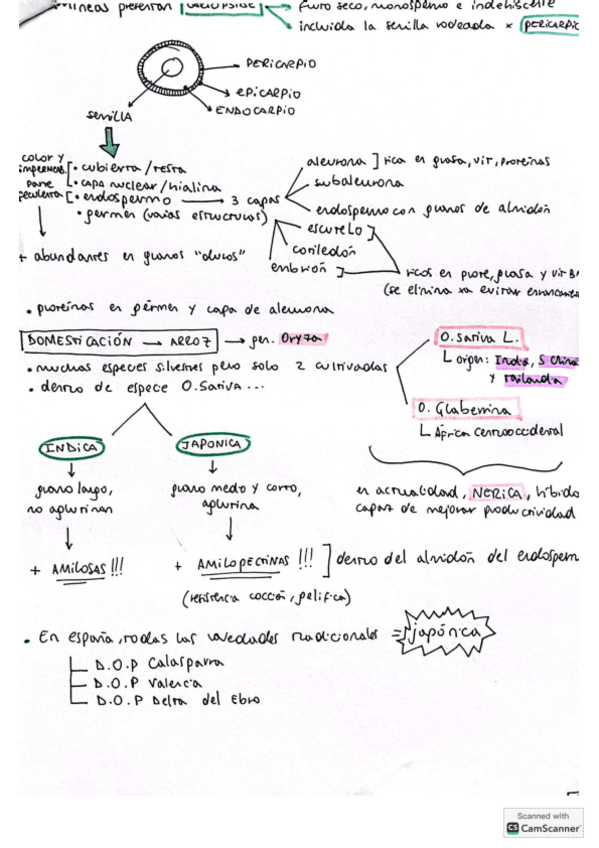 gramíneas presentan CARIÓPSIDE
fruto seco, monospermo e indehiscente
incluida la semilla rodeada x PERICARPIO
PERICARPIO
EPICARPIO
ENDOCARPIO
semilla
color y
impermeab.
cubierta / testa
capa nuclear / hialina
parte
feculenta
endospermo → 3 capas
germen (varias estructuras)
aleurona ] rica en grasa, vit, proteínas
subaleurona
endospermo con granos de almidón
escutelo
cotiledón
embrión
ricos en prote, grasa y vit B
(se elimina xa evitar enranciam
+ abundantes en granos "duros"
• proteínas en germen y capa de aleurona
DOMESTICACIÓN → ARROZ → gen. Oryza
• muchas especies silvestres pero solo 2 cultivadas
• dentro de especie O. Sativa ...
O. Sativa L.
origen: India, S China
y Tailandia
O. Glaberrima
África centrooccidental
INDICA
JAPONICA
grano largo,
no aglutinan
grano medio y corto,
aglutina
en actualidad, NERICA, híbrido
capaz de mejorar productividad
+ AMILOSAS !!!
+ AMILOPECTINAS !!! ] dentro del almidón del endosperm
(resistencia cocción, gelifica)
• En españa, todas las variedades tradicionales => japónica
D.O.P Calasparra
D.O.P Valencia
D.O.P Delta del Ebro
1
Scanned with
CS CamScanner